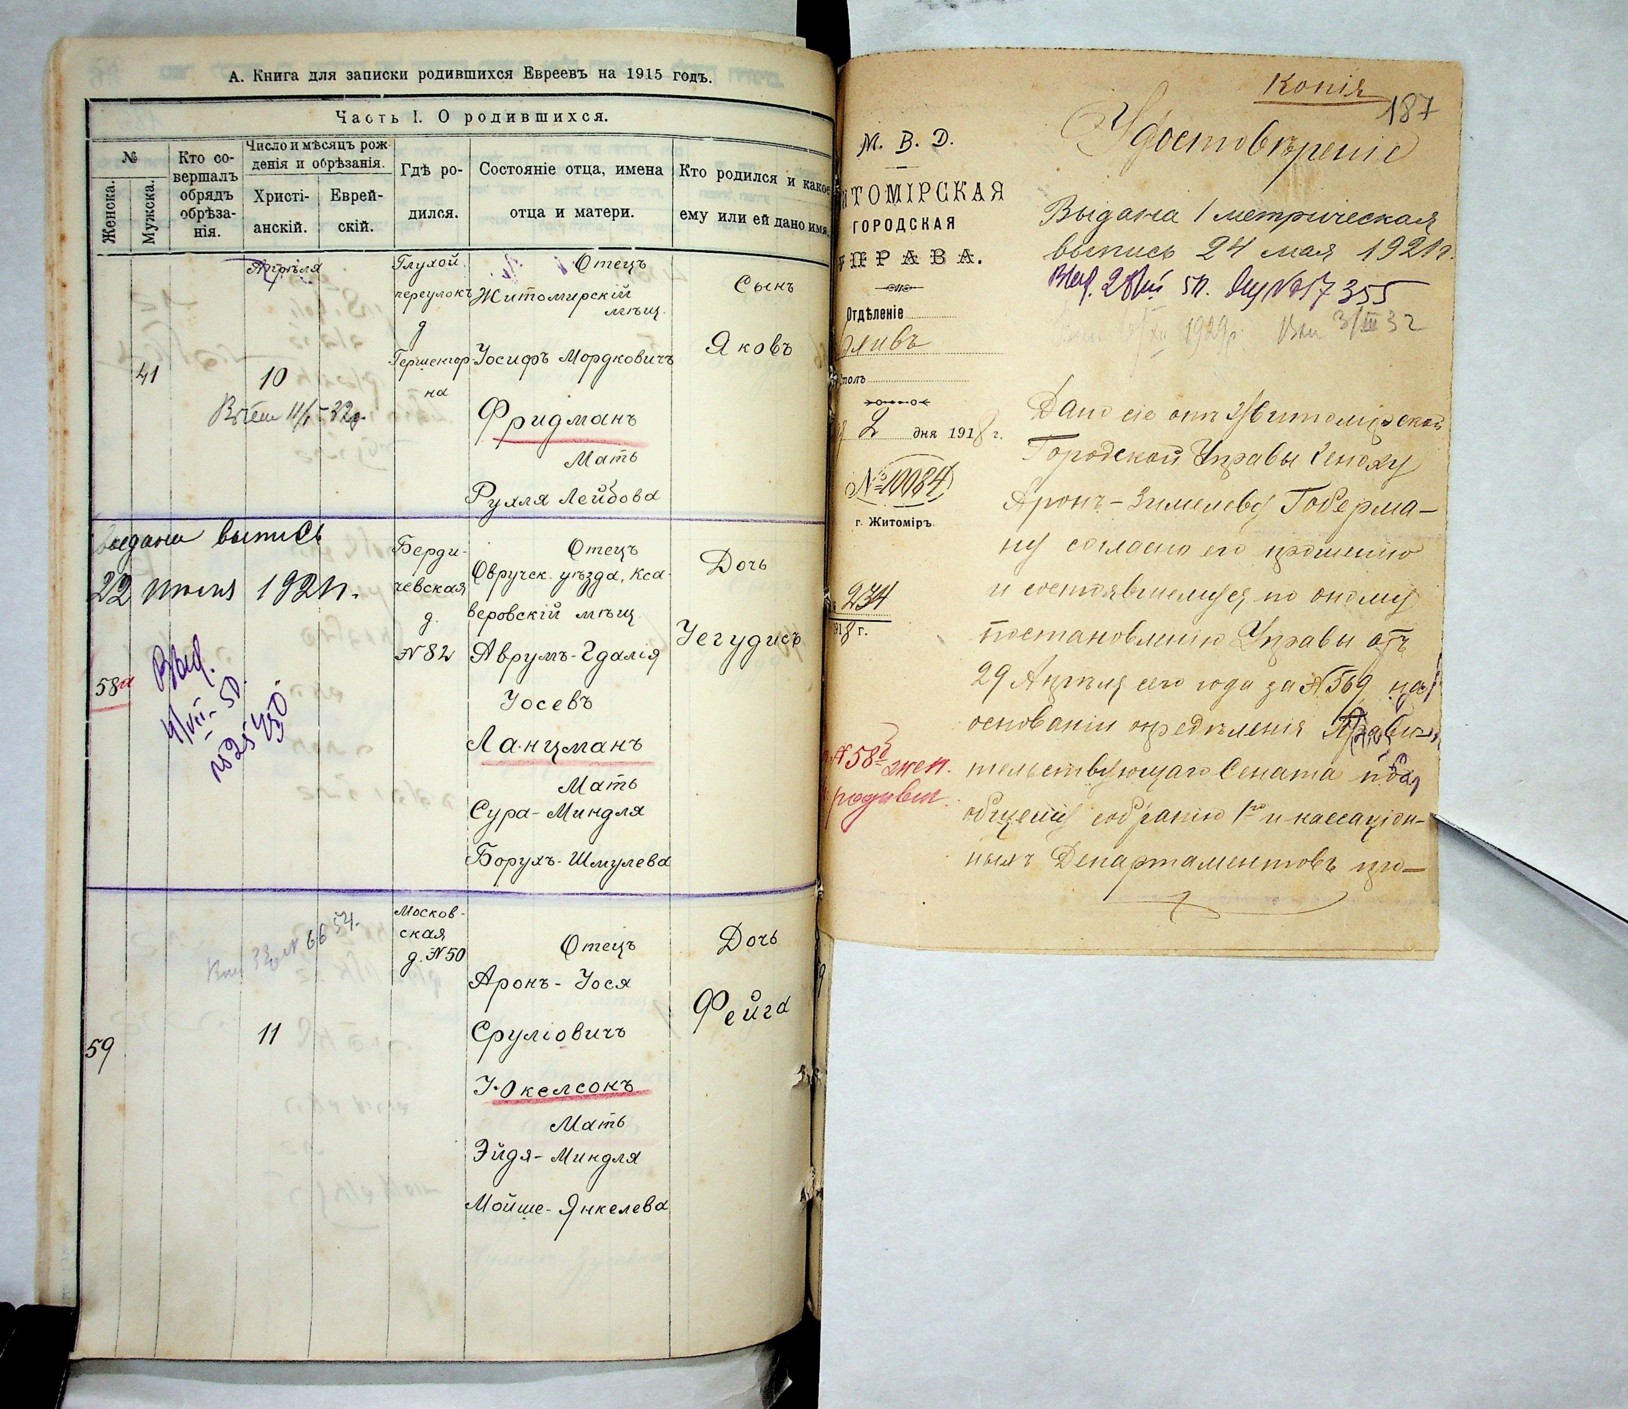 А. Книга для записки родившихся Евреевъ на 1915 годъ.
Часть I. О родившихся.
№
Женска.
Мужска.
Кто со-
вершалъ
обрядъ
обрѣза-
нія.
Число и мѣсяцъ рож-
денія и обрѣзанія.
Христі-
анскій.
Еврей-
скій.
Гдѣ ро-
дился.
Состояніе отца, имена
отца и матери.
Кто родился и какое
ему или ей дано имя.
Апрѣля
41
10
Глухой
переулокъ
д
Гершенгор-
на
Отецъ
Житомирскій
мѣщ.
Іосифъ Мордковичъ
Фридманъ
Мать
Рухля Лейбова
Сынъ
Яковъ
Выдана выпись
22 июля 1921г.
58а
Берди-
чевская
д.
№ 82
Отецъ
Овручск. уѣзда, Кса-
веровскій мѣщ.
Аврумъ-Гдалія
Іосевъ
Ланцманъ
Мать
Сура-Миндля
Борухъ-Шмулева
Дочь
Іегудисъ
Выд.
4/VII-50.
59
11
Москов-
ская
д. №50
Отецъ
Аронъ-Іося
Сруліовичъ
Іокелсонъ
Мать
Эйдя-Миндля
Мойше-Янкелева
Дочь
Фейга
Копія
187
М. В. Д.
ИТОМІРСКАЯ
ГОРОДСКАЯ
УПРАВА.
Отдѣленіе
столъ
2 дня 1918 г.
№ 10084
г. Житоміръ.
234
1918 г.
№58а жен.
родивш.
Удостовѣреніе
Выдана 1 метрическая
выпись 24 мая 1921г.
355
1929г. 3/III 32
Дано сіе отъ Житомірской
Городской Управы Геноху
Аронъ-Зимелеву Гоберма-
ну согласно его прошенію
и состоявшемуся по оному
постановленію Управы отъ
29 Апрѣля сего года за №569 на
основаніи опредѣленія Прави-
тельствующаго Сената по
общему собранію 1го и кассаціон-
ныхъ Департаментовъ про-